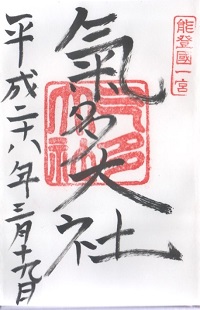 能登國一宮
氣多大社
氣多
大社
平成二十八年三月十九日